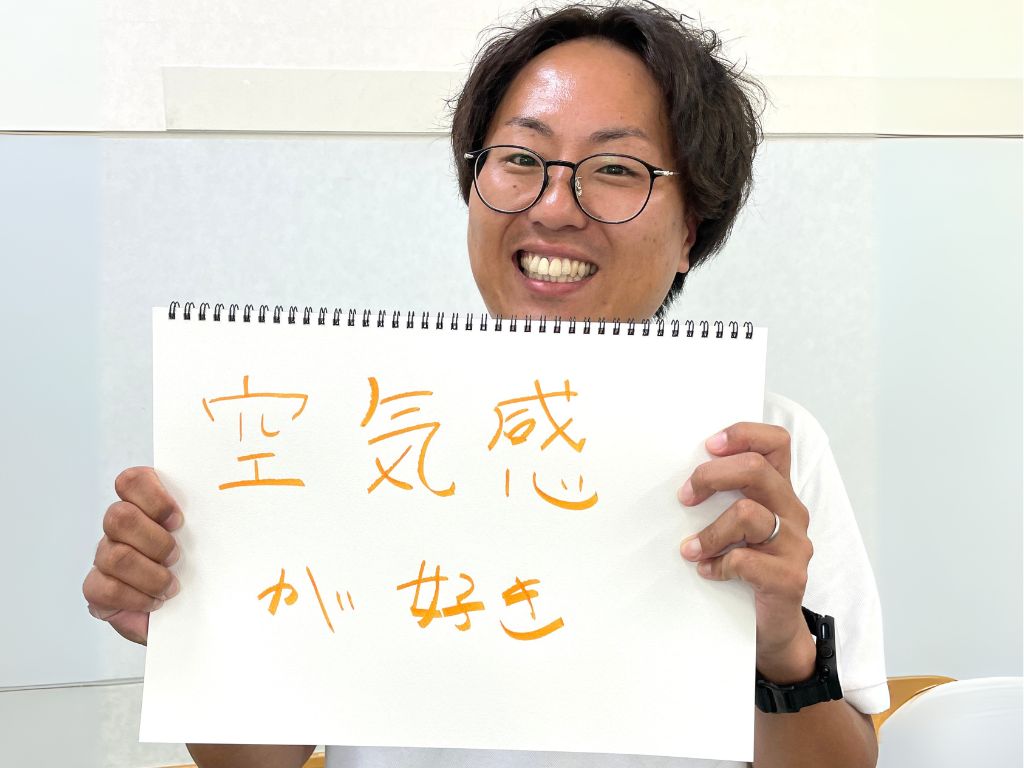 空気感
が好き